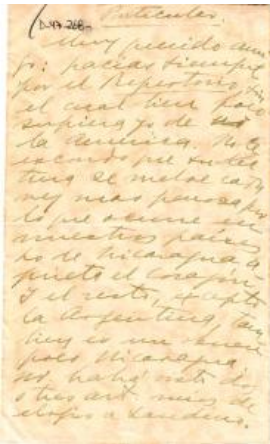 D-47-268-
Particular.
Muy querido ami
go: gracias siempre
por el Repertorio, sin
el cual bien poco
supiera yo de
la America. No le
escondo que su lec
tura me
muy mas penosa por
lo que ocurre en
nuestros países
no de Nicaragua
el corazón.
Y el resto, excepto
la Argentina, tam
bien es un buen
poco Nicaragua
Ud. habrá visto dos
o tres art. mios de
elogio a Sandino.